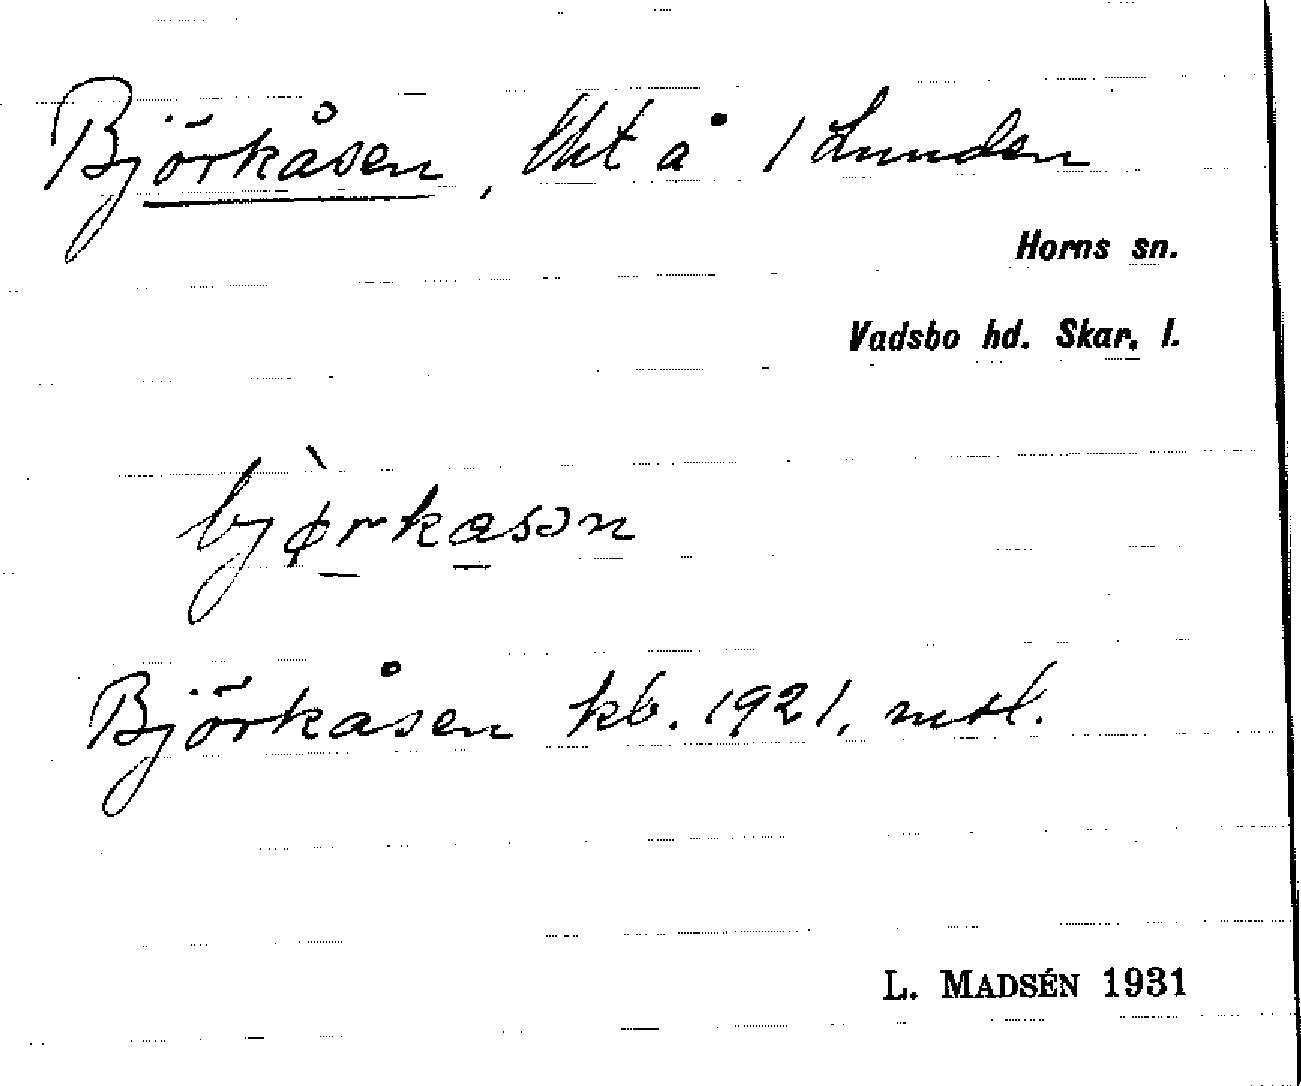 Björkåsen, lht å 1 Lunden
Horns sn.
Vadsbo hd. Skar. l.
bjø̀rkasən
Björkåsen kb. 1921, mtl.
L. MADSÉN 1931